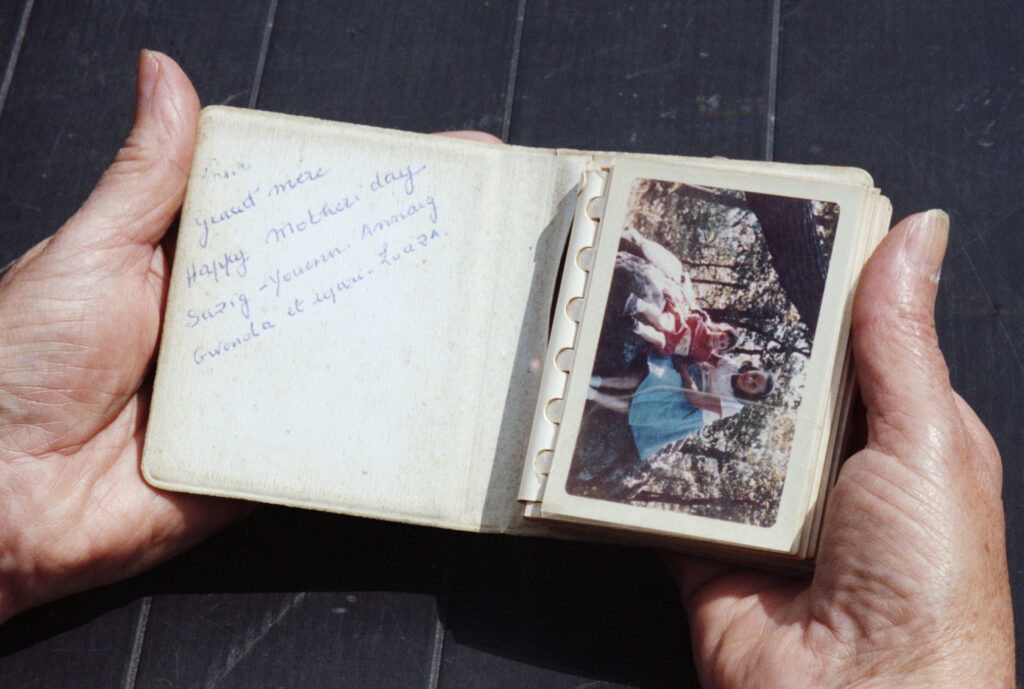 grand' mère
Happy Mother' day
Suzig - Youenn. Annaig
Gwenola et Mari - Loaza.